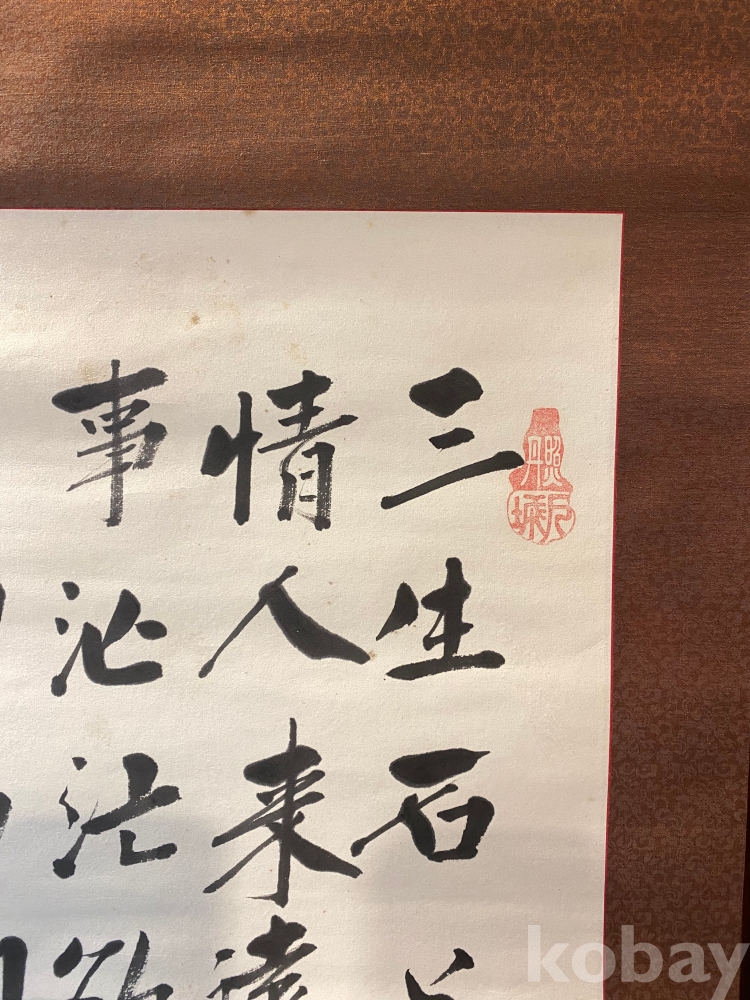 三生石上
情人来遠
事茫茫欲
kobay